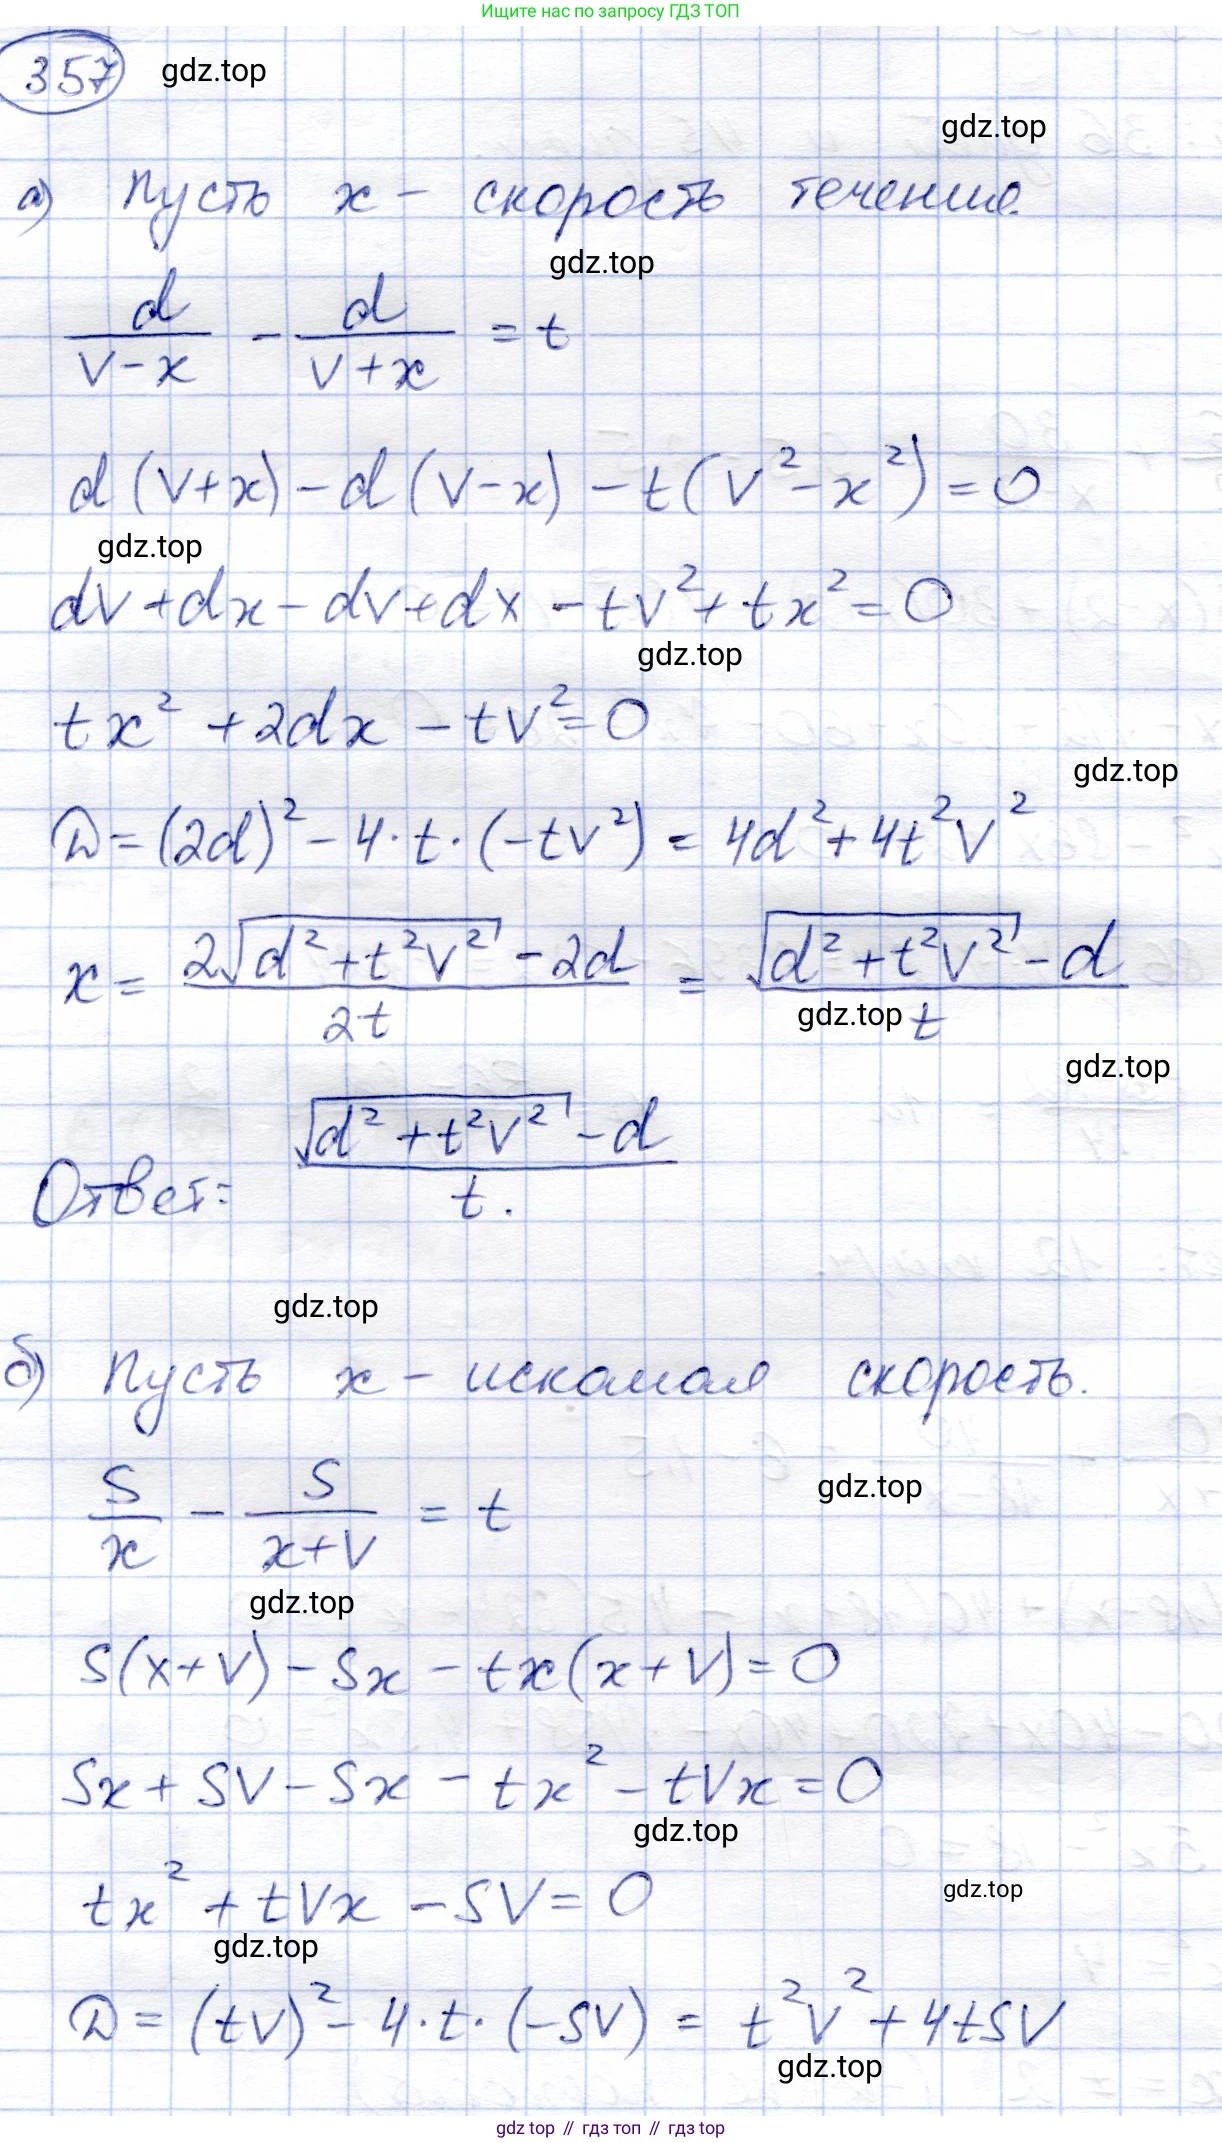 Ищите нас по запросу ГДЗ ТОП
357 gdz.top
gdz.top
а) Пусть x – скорость течения.
gdz.top
d/(v-x) - d/(v+x) = t
d(v+x) - d(v-x) - t(v²-x²) = 0
gdz.top
dv + dx - dv + dx - tv² + tx² = 0
gdz.top
tx² + 2dx - tv² = 0
gdz.top
D = (2d)² - 4·t·(-tv²) = 4d² + 4t²v²
x = (2√(d²+t²v²) - 2d)/(2t) = (√(d²+t²v²) - d)/t
gdz.top
gdz.top
Ответ: (√(d²+t²v²) - d)/t.
gdz.top
б) Пусть x – искомая скорость.
S/x - S/(x+V) = t
gdz.top
gdz.top
S(x+V) - Sx - tx(x+V) = 0
Sx + SV - Sx - tx² - tVx = 0
gdz.top
tx² + tVx - SV = 0
gdz.top
gdz.top
D = (tV)² - 4·t·(-SV) = t²V² + 4tSV
gdz.top
gdz top // гдз топ // gdz.top